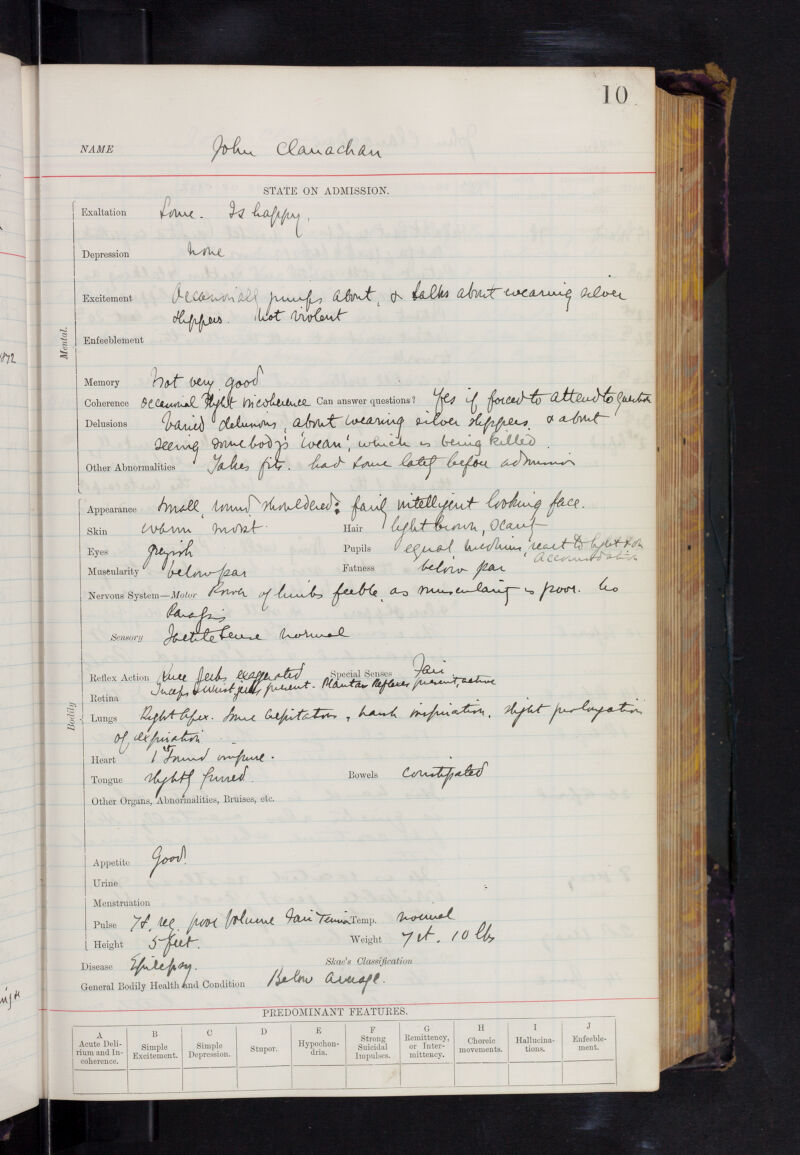 10
NAME John Clanachan
STATE ON ADMISSION.
Mental.
Exaltation Some. Is happy.
Depression None
Excitement Occasionall jumps about, & talks about wearing silver
slippers. Not violent
Enfeeblement
Memory Not very good
Coherence occasional slight incoherence Can answer questions? Yes if forced to attend to question
Delusions Varied delusions, about wearing silver slippers. & about
seeing somebody's 'wean', which is being killed.
Other Abnormalities Takes fits. had some lately before admission
Bodily
Appearance Small, round shouldered; fairly intelligent looking face.
Skin warm moist Hair light brown, scanty
Eyes greyish Pupils equal, medium, react to light & to
accommodation
Muscularity below par Fatness below par
Nervous System—Motor Power of limbs feeble, as muscularity is poor. No
Paralysis
Sensory Tactile Sense normal
Reflex Action Knee Jerks exaggerated Special Senses Fair
Triceps & wrist jerks present. Plantar Reflexes present, active
Retina
Lungs Right Apex. Some Crepitations, harsh inspiration, slight prolongation
of expiration
Heart 1st Sound impure.
Tongue slightly furred. Bowels Constipated
Other Organs, Abnormalities, Bruises, etc.
Appetite Good.
Urine
Menstruation
Pulse 78, reg. poor Volume Fair Tension Temp. normal
Height 5 feet. Weight 7 st. 10 lbs
Disease Epilepsy. Skae's Classification
General Bodily Health and Condition Below average.
PREDOMINANT FEATURES.
A Acute Delirium and Incoherence.
B Simple Excitement.
C Simple Depression.
D Stupor.
E Hypochondria.
F Strong Suicidal Impulses.
G Remittency, or Intermittency.
H Choreic movements.
I Hallucinations.
J Enfeeblement.